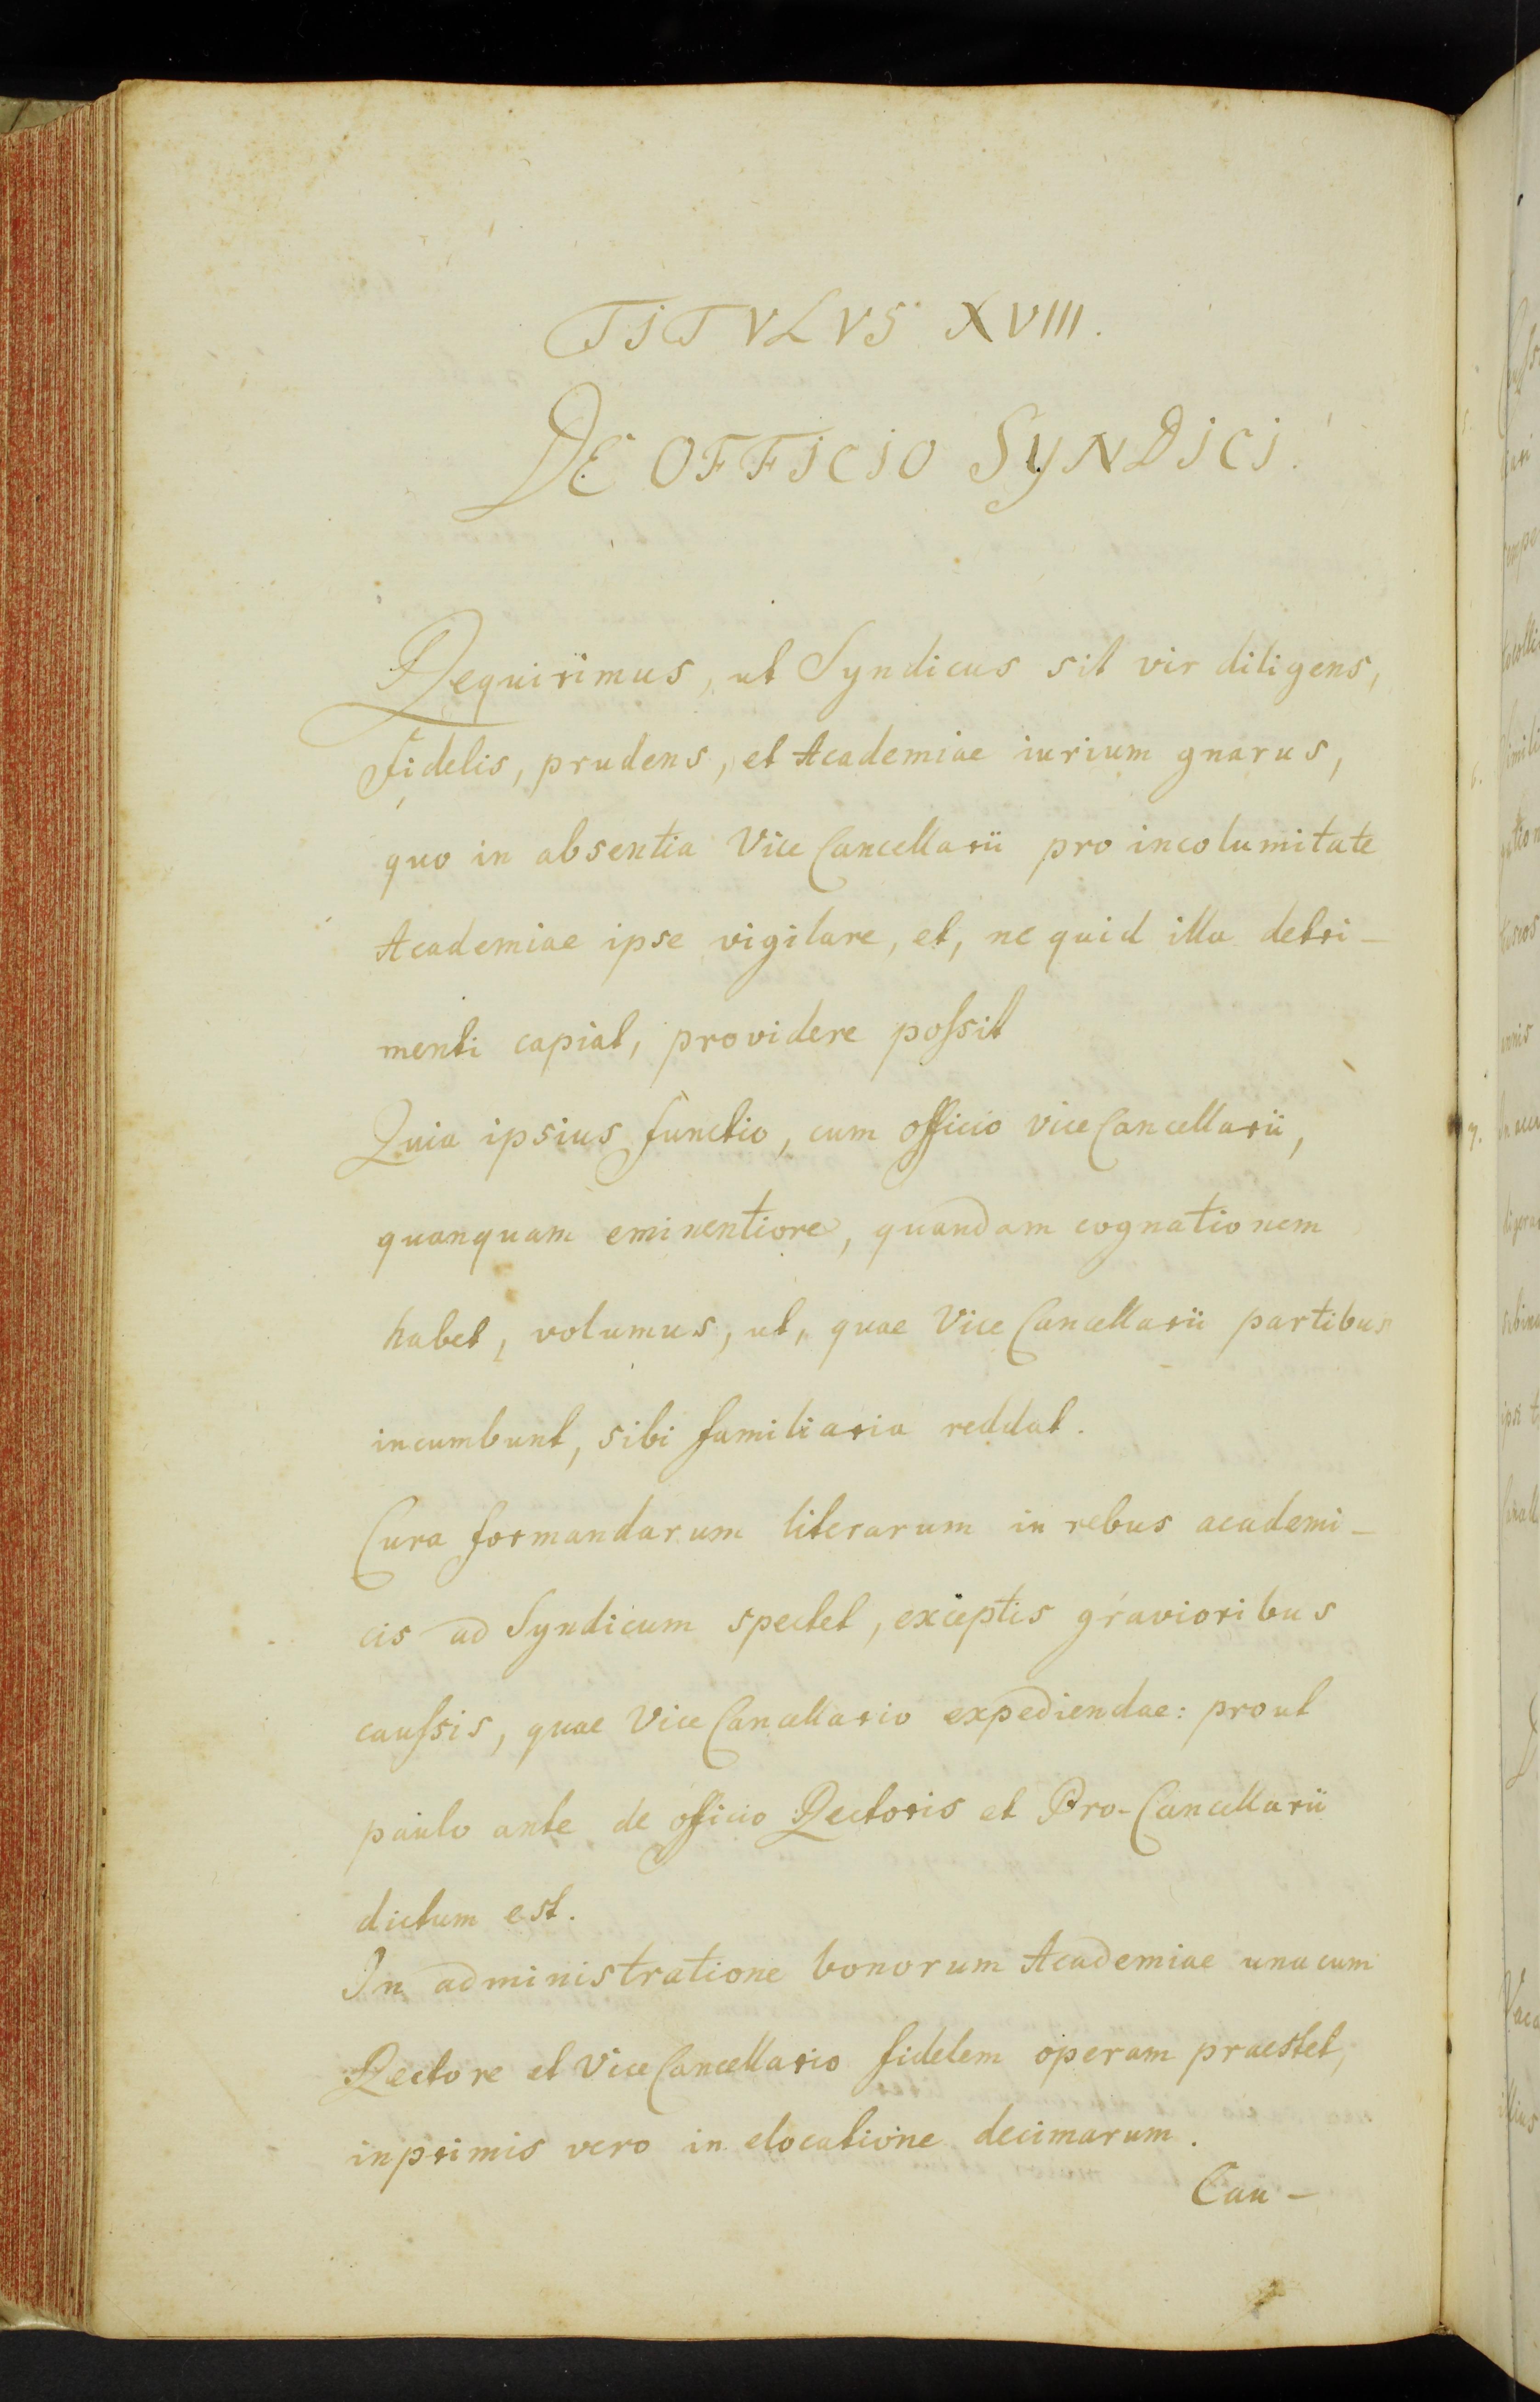 TITVLVS XVIII.
DE OFFICIO SYNDICI.
Requirimus, ut Syndicus sit vir diligens,
fidelis, prudens, et Academiae iurium gnarus,
quo in absentia Vice Cancellarii pro incolumitate
Academiae ipse vigilare, et, ne quid illa detri-
menti capiat, providere poſsit
Quia ipsius functio, cum officio vice Cancellarii,
quanquam eminentiore, quandam cognationem
habet, volumus, ut, quae Vice Cancellarii partibus
incumbunt, sibi familiaria reddat.
Cura formandarum literarum in rebus academi-
cis ad Syndicum spectet, exceptis gravioribus
cauſsis, quae Vice Cancellario expediendae: prout
paulo ante de officio Rectoris et Pro-Cancellarii
dictum est.
In administratione bonorum Academiae una cum
Rectore et Vice Cancellario fidelem operam praestet,
inprimis vero in elocatione decimarum.
Cau-